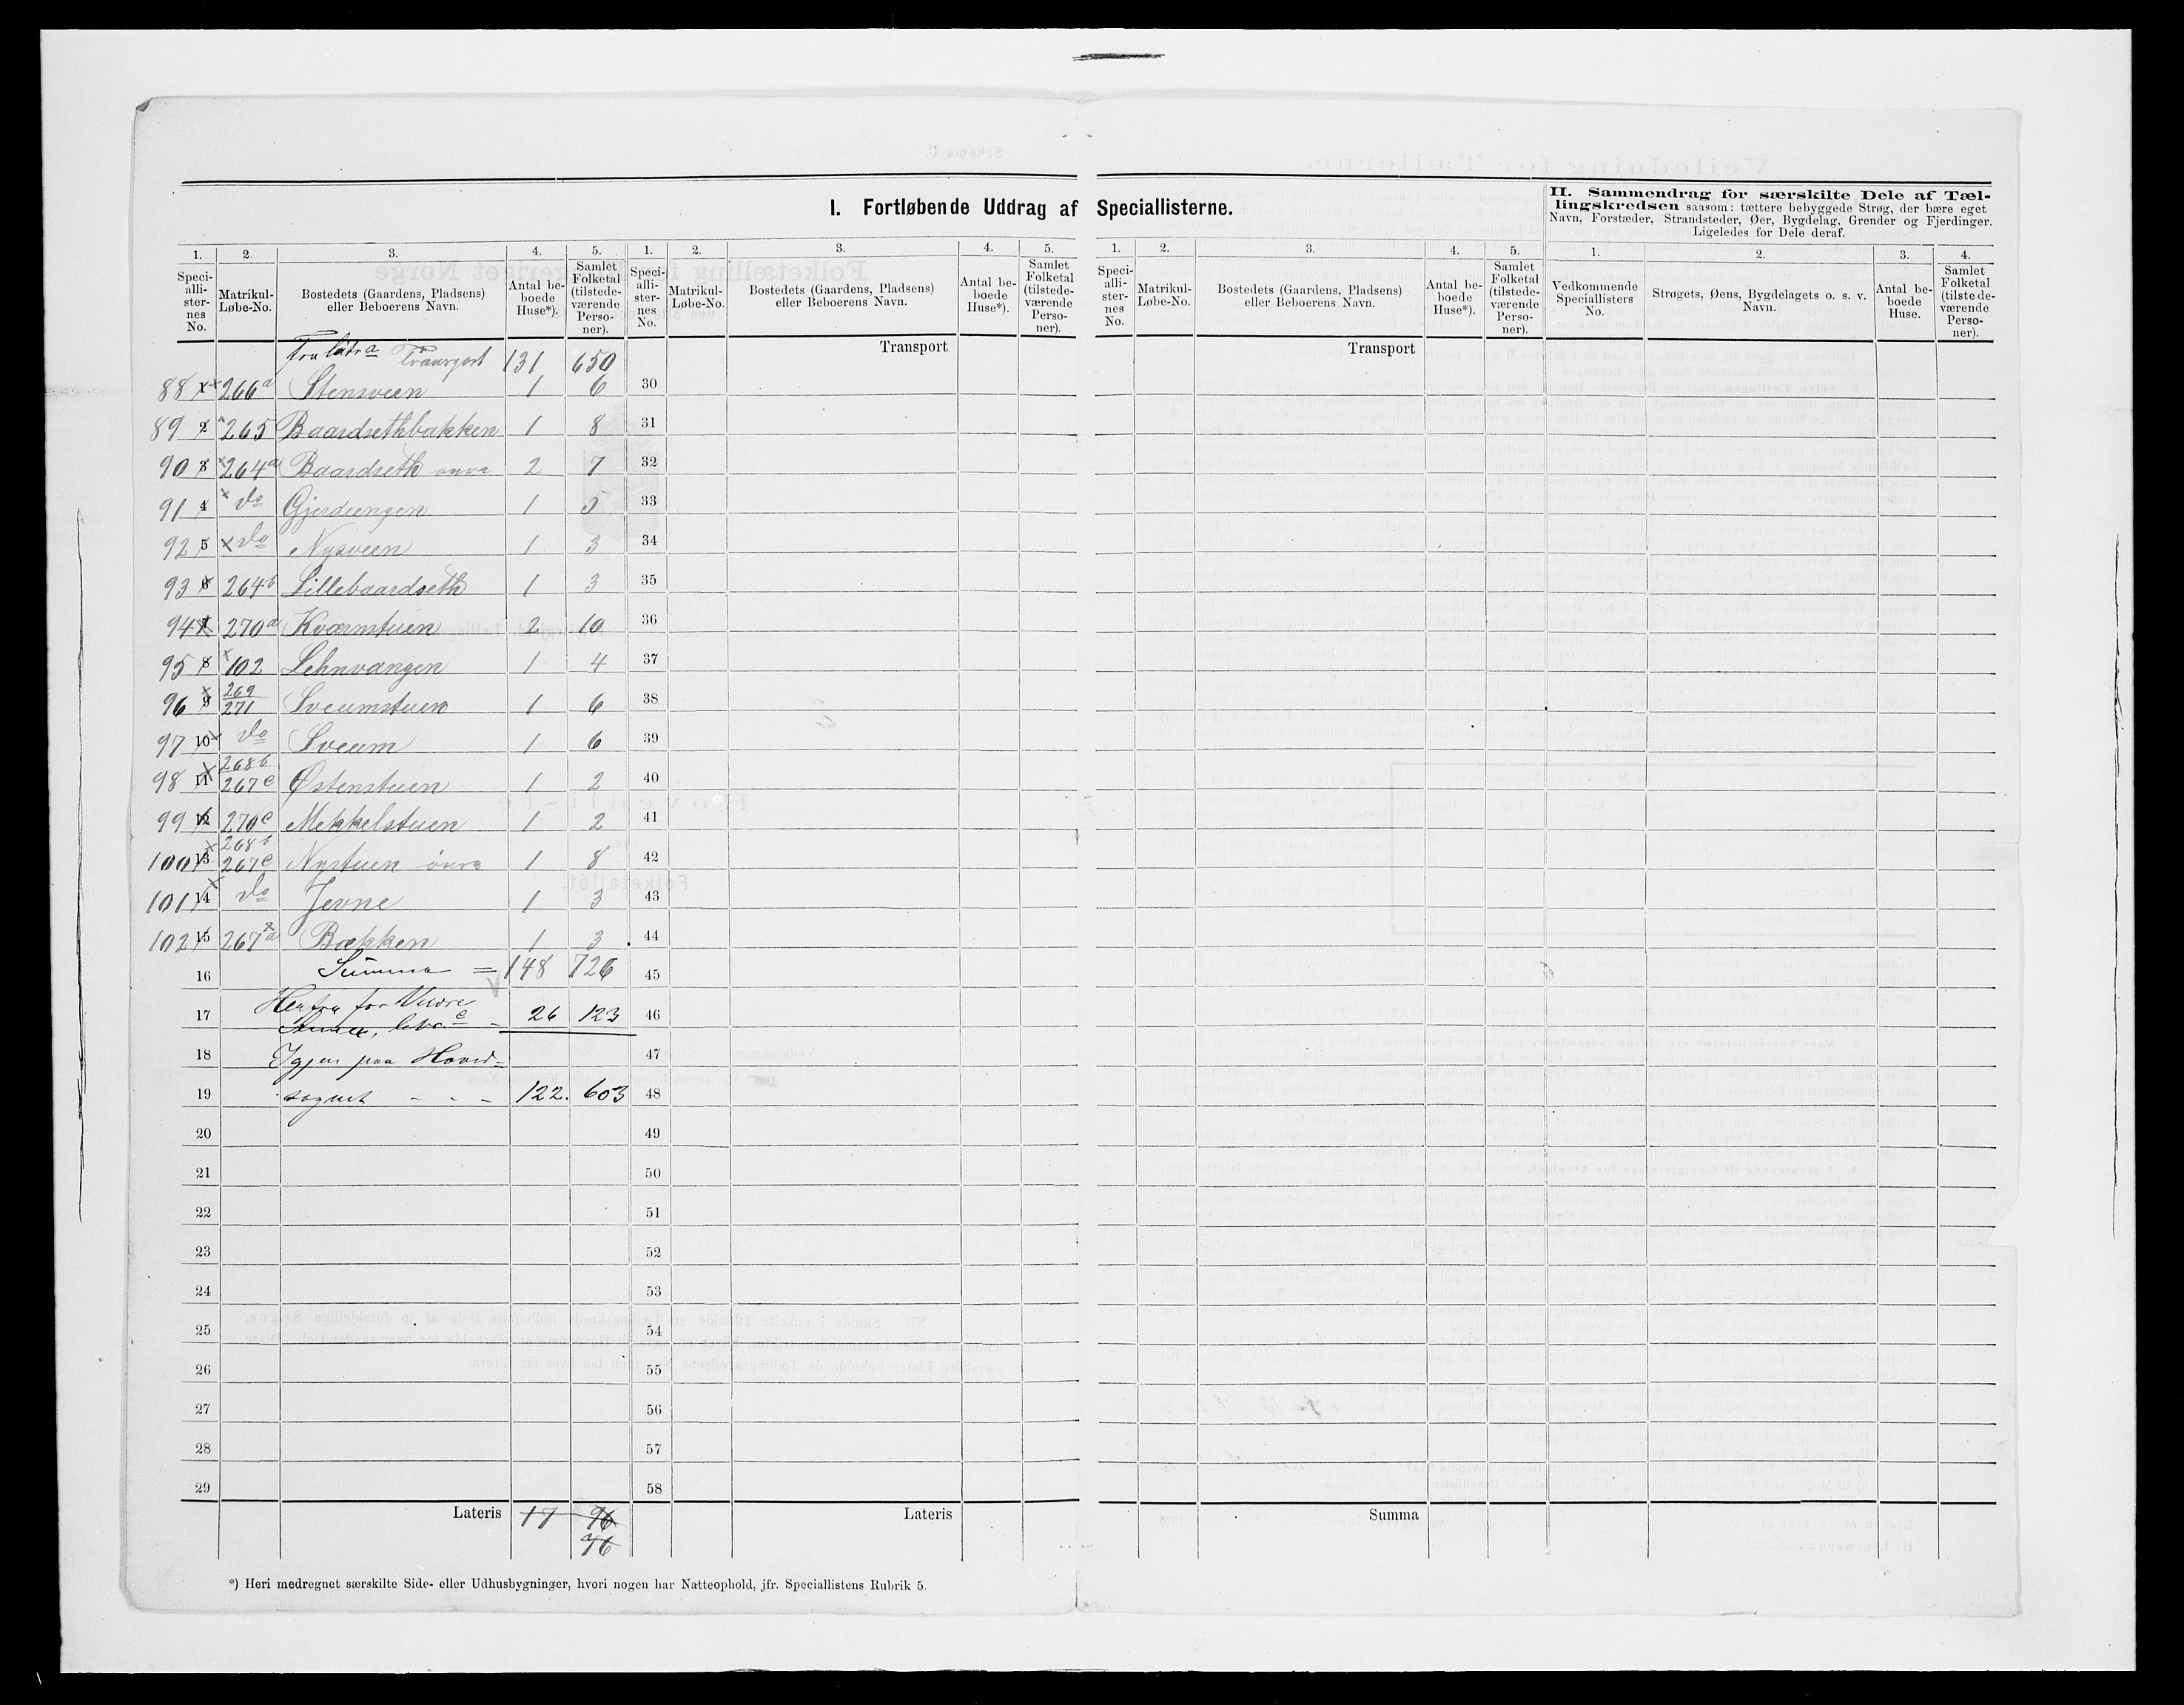 I. Fortløbende Uddrag af Speciallisterne.
II. Sammendrag for særskilte Dele af Tæl-
lingskredsen saasom: tættere bebyggede Strøg, der bære eget
Navn, Forstæder, Strandsteder, Øer, Bygdelag, Grender og Fjerdinger.
Ligeledes for Dele deraf.
1. 2. 3. 4. 5. 1. 2. 3. 4. 5. 1. 2. 3. 4. 5. 1. 2. 3. 4.
Speci-alli-ster-nes No. Matrikul-Løbe-No. Bostedets (Gaardens, Pladsens) eller Beboerens Navn. Antal be-boede Huse*). Samlet Folketal (tilstede-værende Perso-ner).
Speci-alli-ster-nes No. Matrikul-Løbe-No. Bostedets (Gaardens, Pladsens) eller Beboerens Navn. Antal be-boede Huse*). Samlet Folketal (tilstede-værende Perso-ner).
Speci-alli-ster-nes No. Matrikul-Løbe-No. Bostedets (Gaardens, Pladsens) eller Beboerens Navn. Antal be-boede Huse*). Samlet Folketal (tilstede-værende Perso-ner).
Vedkommende Speciallisters No. Strøgets, Øens, Bygdelagets o. s. v. Navn. Antal be-boede Huse. Samlet Folketal (tilstede-værende Perso-ner).
Fra litra a Transport 131 650 Transport Transport
88 1 266a Stensveen 1 6 30
89 2 265 Baardsethbakken 1 8 31
90 3 264a Baardseth 2 7 32
91 4 do Gjerdeengen 1 5 33
92 5 do Nysveen 1 3 34
93 6 264b Lillebaardseth 1 3 35
94 7 270a Kværnstuen 2 10 36
95 8 102 Lehnvangen 1 4 37
96 9 269/271 Sveumstuen 1 6 38
97 10 do Sveum 1 6 39
98 11 268b 267c Østenstuen 1 2 40
99 12 270c Mekkelstuen 1 2 41
100 13 268b 267c Nystuen 1 8 42
101 14 do Jevne 1 3 43
102 15 267a Bækken 1 3 44
16 Summa = 148 726 45
17 Herfra for
litr. c - 26 123 46
18 Igjen paa Hoved= 47
19 sognet - - - 122. 603 48
20 49
21 50
22 51
23 52
24 53
25 54
26 55
27 56
28 57
29 58
Lateris 17 96 Lateris Summa
76
*) Heri medregnet særskilte Side- eller Udhusbygninger, hvori nogen har Natteophold, jfr. Speciallistens Rubrik 5.